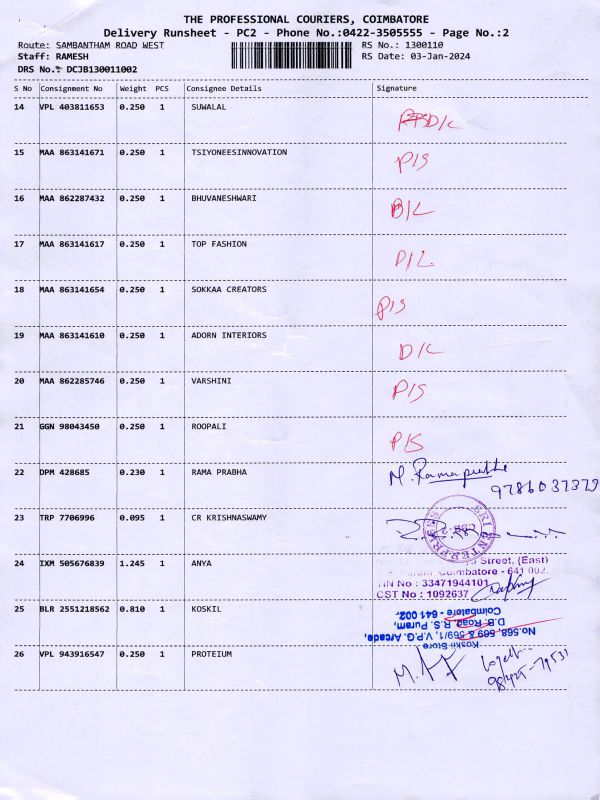 THE PROFESSIONAL COURIERS, COIMBATORE
Delivery Runsheet - PC2 - Phone No.:0422-3505555 - Page No.:2
Route: SAMBANTHAM ROAD WEST RS No.: 1300110
Staff: RAMESH RS Date: 03-Jan-2024
DRS No.: DCJB130011002
S No Consignment No Weight PCS Consignee Details Signature
14 VPL 403811653 0.250 1 SUWALAL D/L
15 MAA 863141671 0.250 1 TSIYONEESINNOVATION P/S
16 MAA 862287432 0.250 1 BHUVANESHWARI D/L
17 MAA 863141617 0.250 1 TOP FASHION D/L
18 MAA 863141654 0.250 1 SOKKAA CREATORS P/S
19 MAA 863141610 0.250 1 ADORN INTERIORS D/L
20 MAA 862285746 0.250 1 VARSHINI P/S
21 GGN 98043450 0.250 1 ROOPALI P/S
22 DPM 428685 0.230 1 RAMA PRABHA M. Ramaprabha
9786037379
23 TRP 7706996 0.095 1 CR KRISHNASWAMY
SRI ENTERPRISES
CBE-2
24 IXM 505676839 1.245 1 ANYA Street, (East)
Puram, Coimbatore - 641 002.
TIN No : 33471944101
CST No : 1092637
25 BLR 2551218562 0.810 1 KOSKIL
Koskii Store
No.568, 569 & 569/1, V.P.G. Arcade,
D.B. Road, R.S. Puram,
Coimbatore - 641 002.
26 VPL 943916547 0.250 1 PROTEIUM